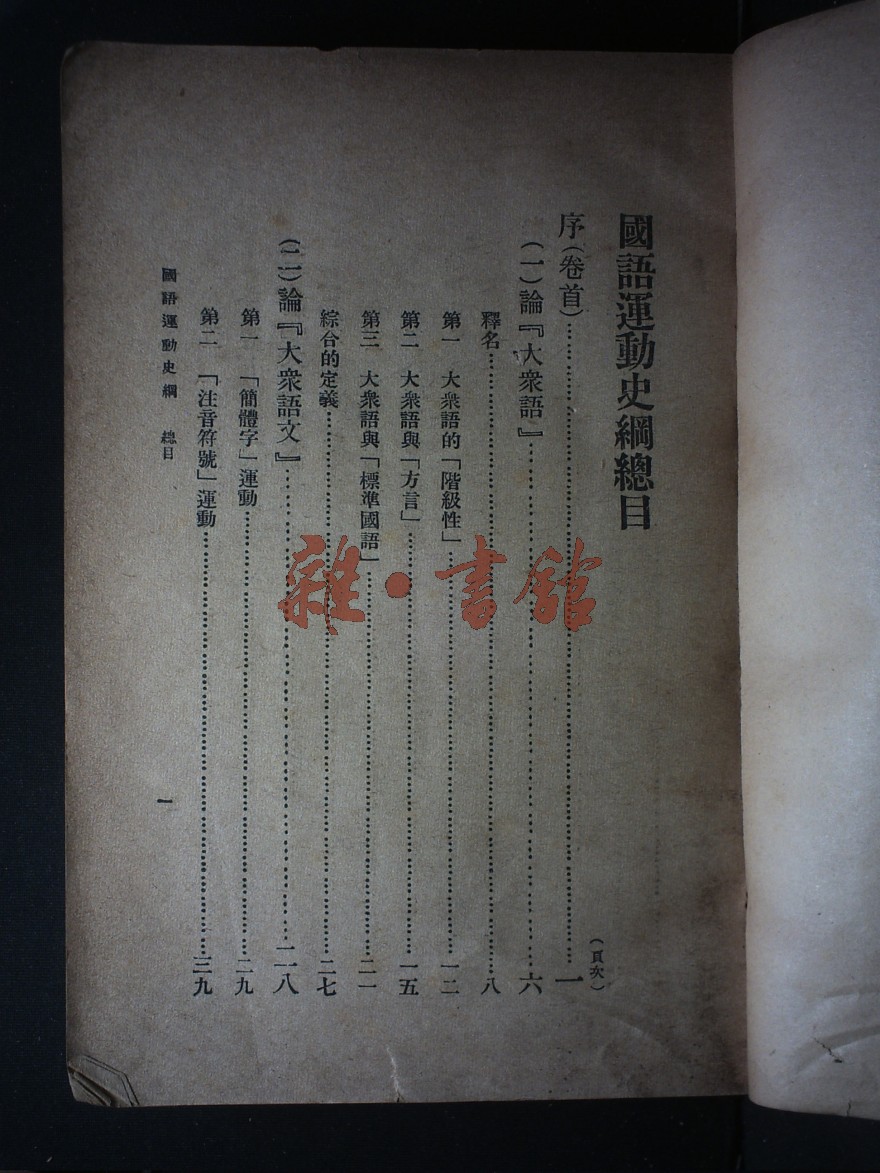 國語運動史綱總目
(頁次)
序(卷首)……一
(一)論『大衆語』……六
釋名……八
第一 大衆語的「階級性」……一二
第二 大衆語與「方言」……一五
第三 大衆語與「標準國語」……二一
綜合的定義……二七
(二)論『大衆語文』……二八
第一 「簡體字」運動……二九
第二 「注音符號」運動……三九
國語運動史綱 總目
一
雜·書館